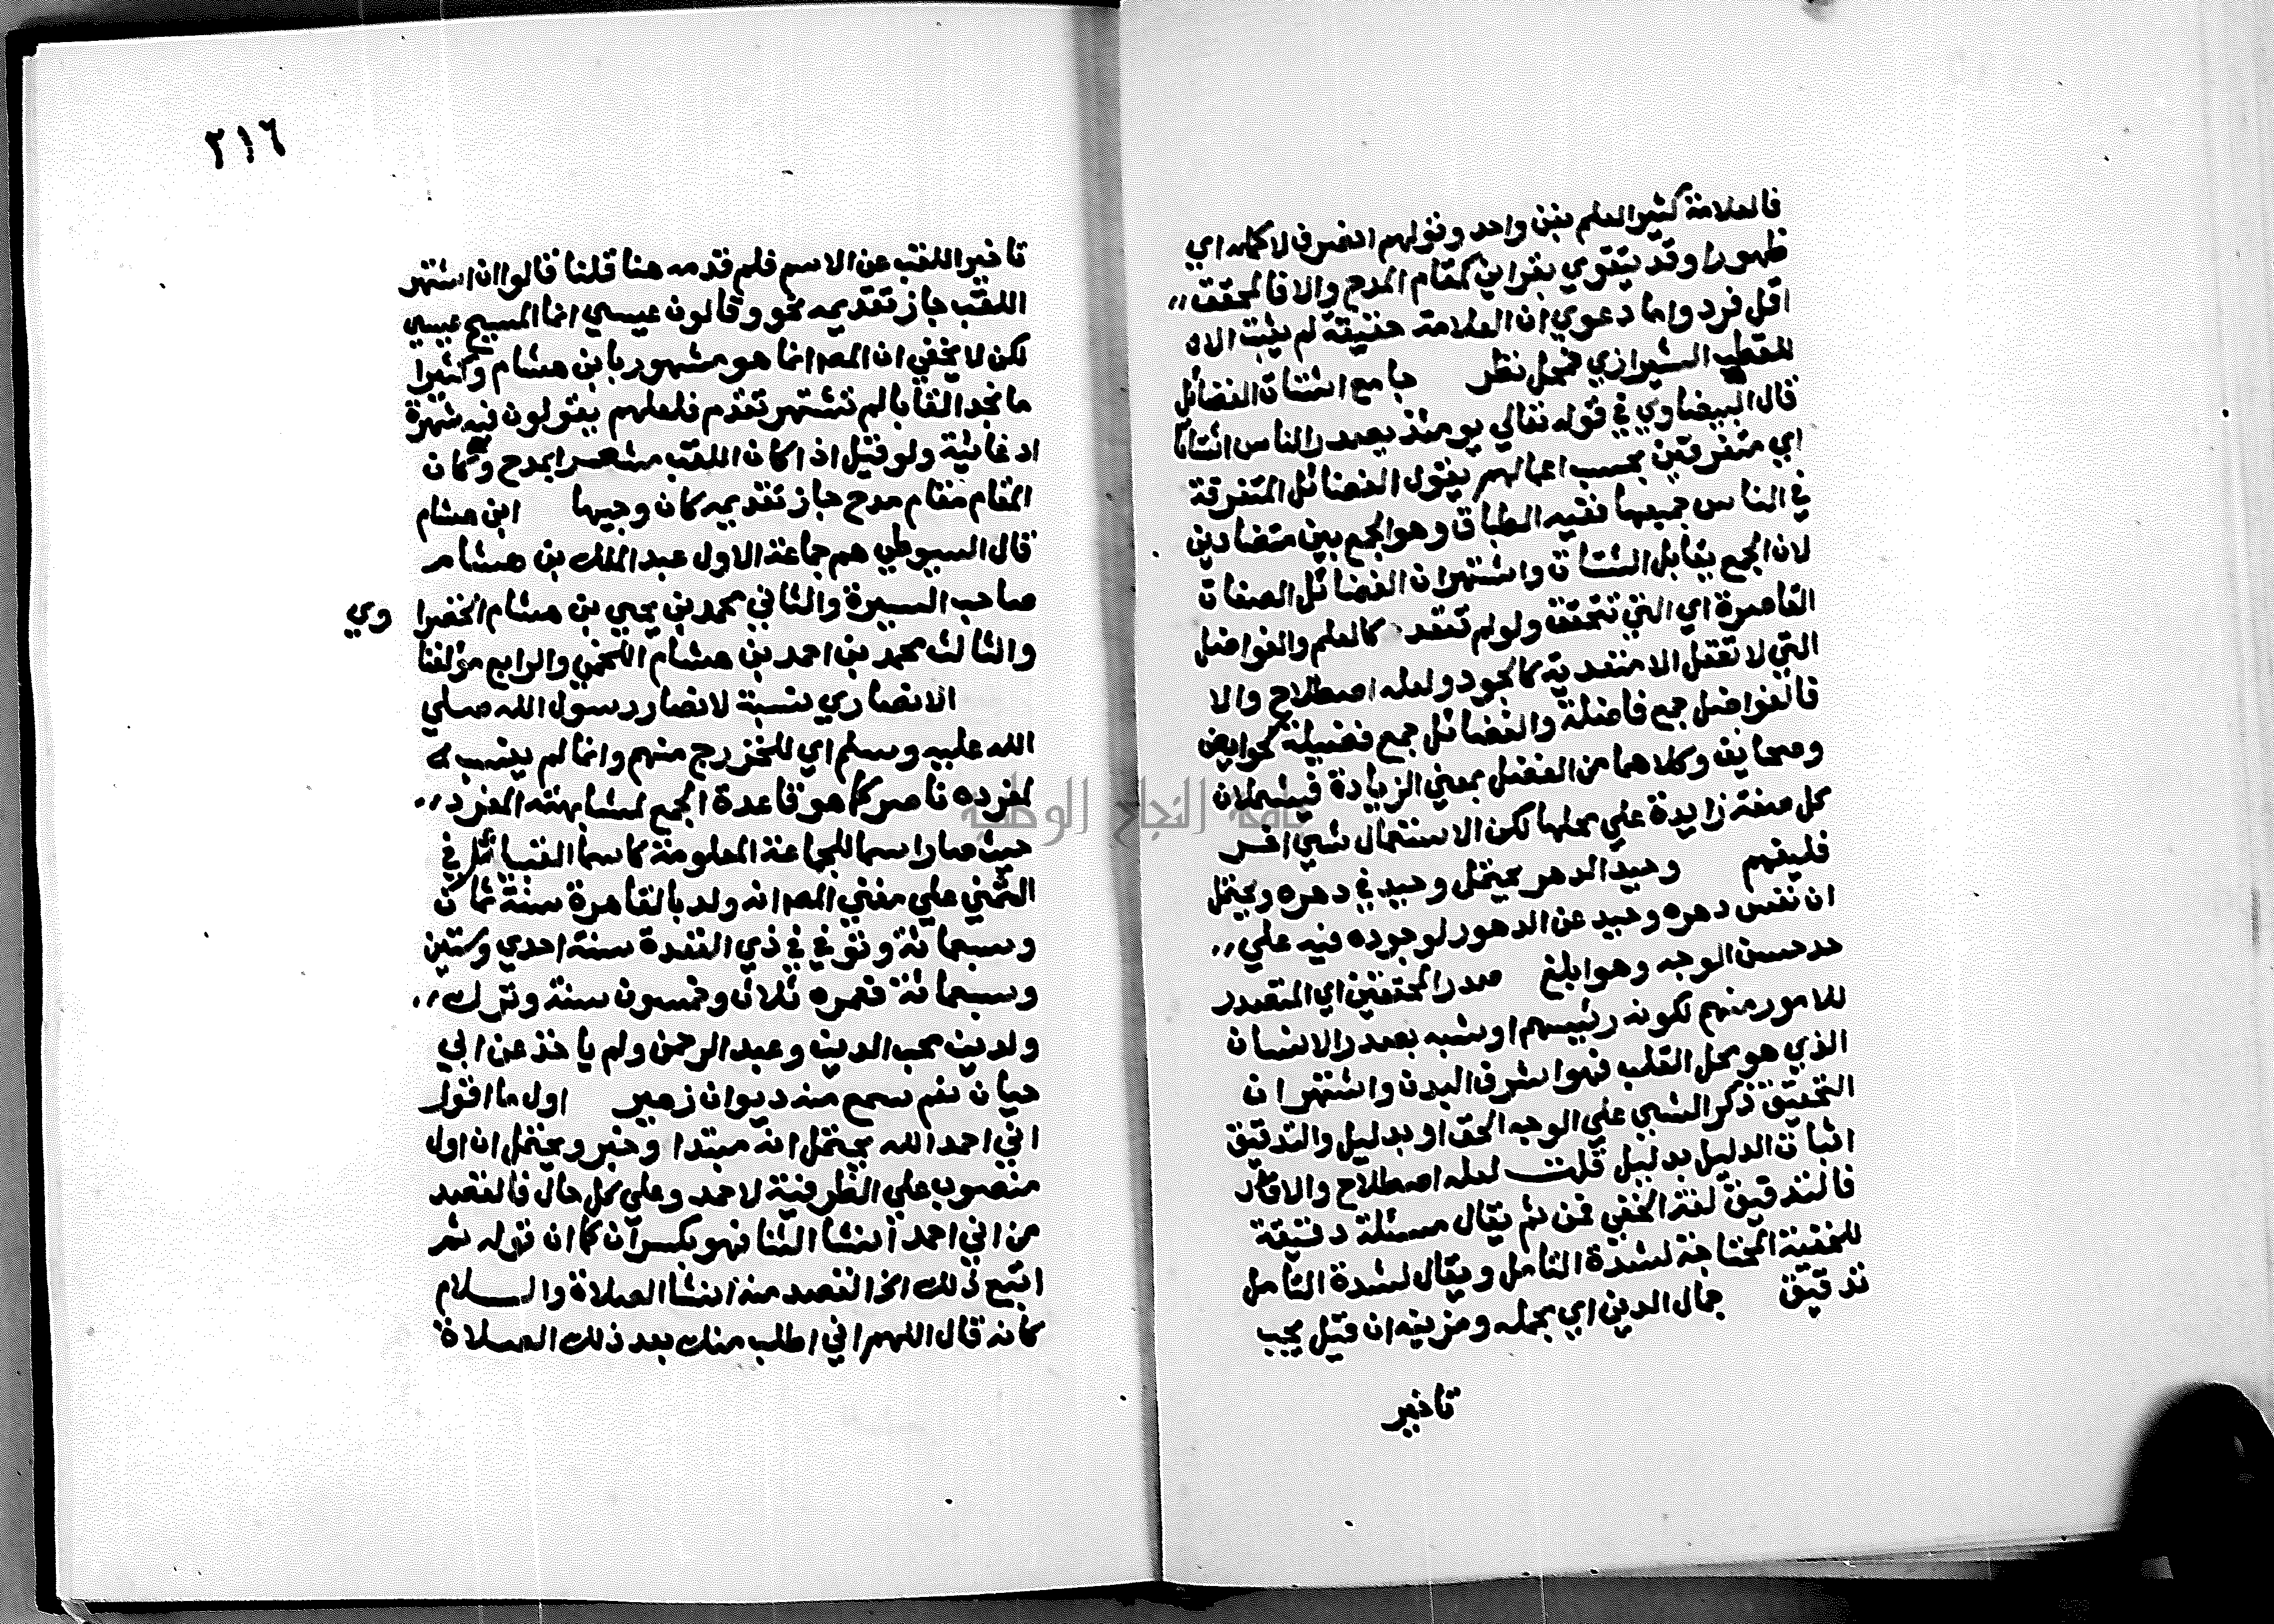 فالعلامة كثير العلم بفن واحد وقولهم انصرف لاكمله اي
ظهورا وقد يتقوي بقراين كمقام المدح والا فالمحقق
اقل فرد واما دعوي ان العلامة حقيقة لم يثبت الا
للقطب الشيرازي فمحل نظر جامع اشتات الفضائل
قال البيضاوي في قوله تعالي يومئذ يصدر الناس اشتاتا
اي متفرقين بحسب اعمالهم يقول الفضائل المتفرقة
في الناس جميعها ففيه الطباق وهو الجمع بين متضادين
لان الجمع يقابل الشتات واشتهر ان الفضائل الصفات
القاصرة اي التي تتحقق ولو لم تتعد كالعلم والفواضل
التي لا تعقل الا متعدية كالجود ولعله اصطلاح والا
فالفواضل جمع فاضلة والفضائل جمع فضيلة
وصحايف وكلاهما من الفضل بمعني الزيادة فيشملان
كل صفة زايدة علي محلها لكن الاستعمال شي اخر
فليفهم وحيد الدهر يحتمل وحيد في دهره ويحتمل
ان نفس دهره وحيد عن الدهور لوجوده فيه علي
حد حسن الوجه وهو ابلغ صدر المحققين اي المتصدر
للامور منهم لكونه رئيسهم او شبه بصدر الانسان
الذي هو محل القلب فهو اشرف البدن واشتهر ان
التحقيق ذكر الشي علي الوجه الحق او بدليل والتدقيق
اثبات الدليل بدليل قلت لعله اصطلاح والا
فالتدقيق لغة الخفي فمن ثم يقال مسئلة دقيقة
للخفية المحتاجة لشدة التامل ويقال لشدة التامل
تدقيق جمال الدين اي مجمله ومزينه ان قيل يجب
تاخير
٢١٦
تاخير اللقب عن الاسم فلم قدمه هنا قلنا قالوا ان اشتهر
اللقب جاز تقديمه نحو وقالون عيسي انما المسيح عيسي
لكن لا يخفي ان المصـ انما هو مشهور بابن هشام وكثيرا
ما نجد القابا لم تشتهر تقدم فلعلهم يقولون فيه شهرة
ادعائية ولو قيل اذا كان اللقب مشعرا بمدح وكان
المقام مقام مدح جاز تقديمه كان وجيها ابن هشام
قال السيوطي هم جماعة الاول عبد الملك بن هشام
صاحب السيرة والثاني محمد بن يحيي بن هشام الخضرا وي
والثالث محمد بن احمد بن هشام اللخمي والرابع مؤلفنا
الانصاري نسبة لانصار رسول الله صلي
الله عليه وسلم اي للخزرج منهم وانما لم ينسب
لمفرده ناصر كما هو قاعدة الجمع لمشابهته المفرد
حيث صار اسما للجماعة المعلومة كاسما القبائل في
الشمني علي مغني المصـ انه ولد بالقاهرة سنة ثمان
وسبعمائة وتوفي في ذي القعدة سنة احدي وستين
وسبعمائة فعمره ثلاث وخمسون سنة وترك
ولدين محب الدين وعبد الرحمن ولم ياخذ عن ابي
حيان نعم سمع منه ديوان زهير اول ما اقول
اني احمد الله يحتمل انه مبتدا وخبر ويحتمل ان اول
منصوب علي الظرفية لاحمد وعلي كل حال فالقصد
من اني احمد انشا الثنا فهو بكسر ان كما ان قوله ثم
اتبع ذلك الخ القصد منه انشا الصلاة والسلام
كانه قال اللهم اني اطلب منك بعد ذلك الصلاة
جامعة النجاح الوطنية